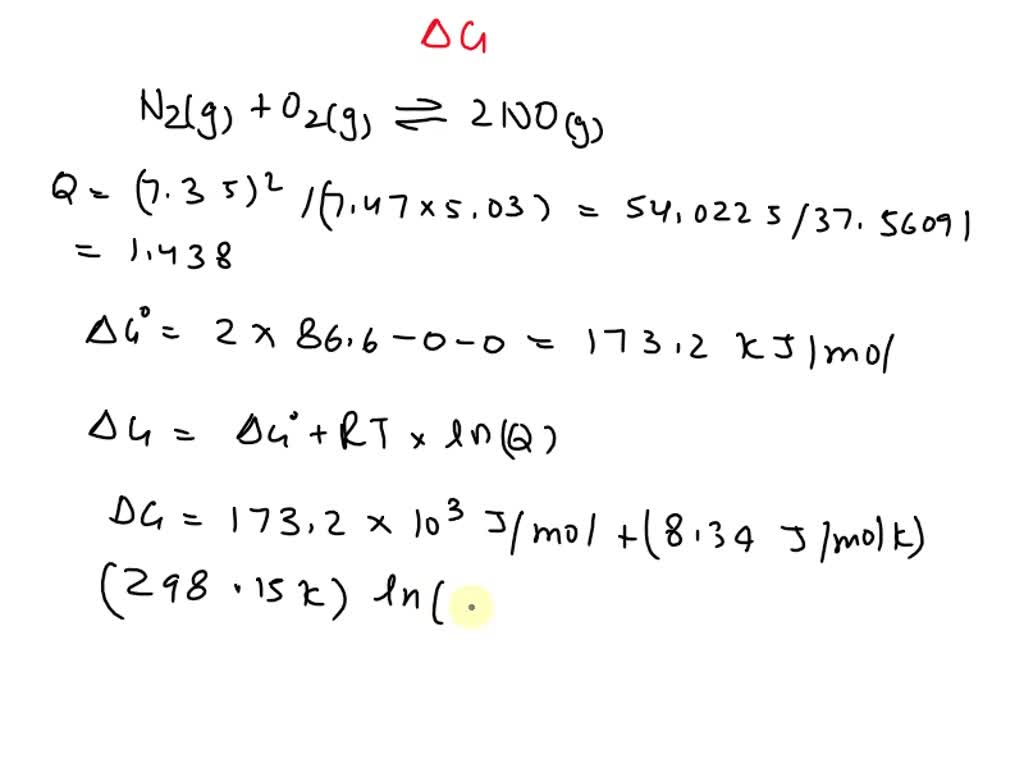 ΔG
N2(g) + O2(g) ⇌ 2NO(g)
Q = (7.35)² / (7.47 × 5.03) = 54.0225 / 37.56091
= 1.438
ΔG° = 2 × 86.6 - 0 - 0 = 173.2 kJ/mol
ΔG = ΔG° + RT × ln(Q)
ΔG = 173.2 × 10³ J/mol + (8.34 J/molK)
(298.15K) ln(.